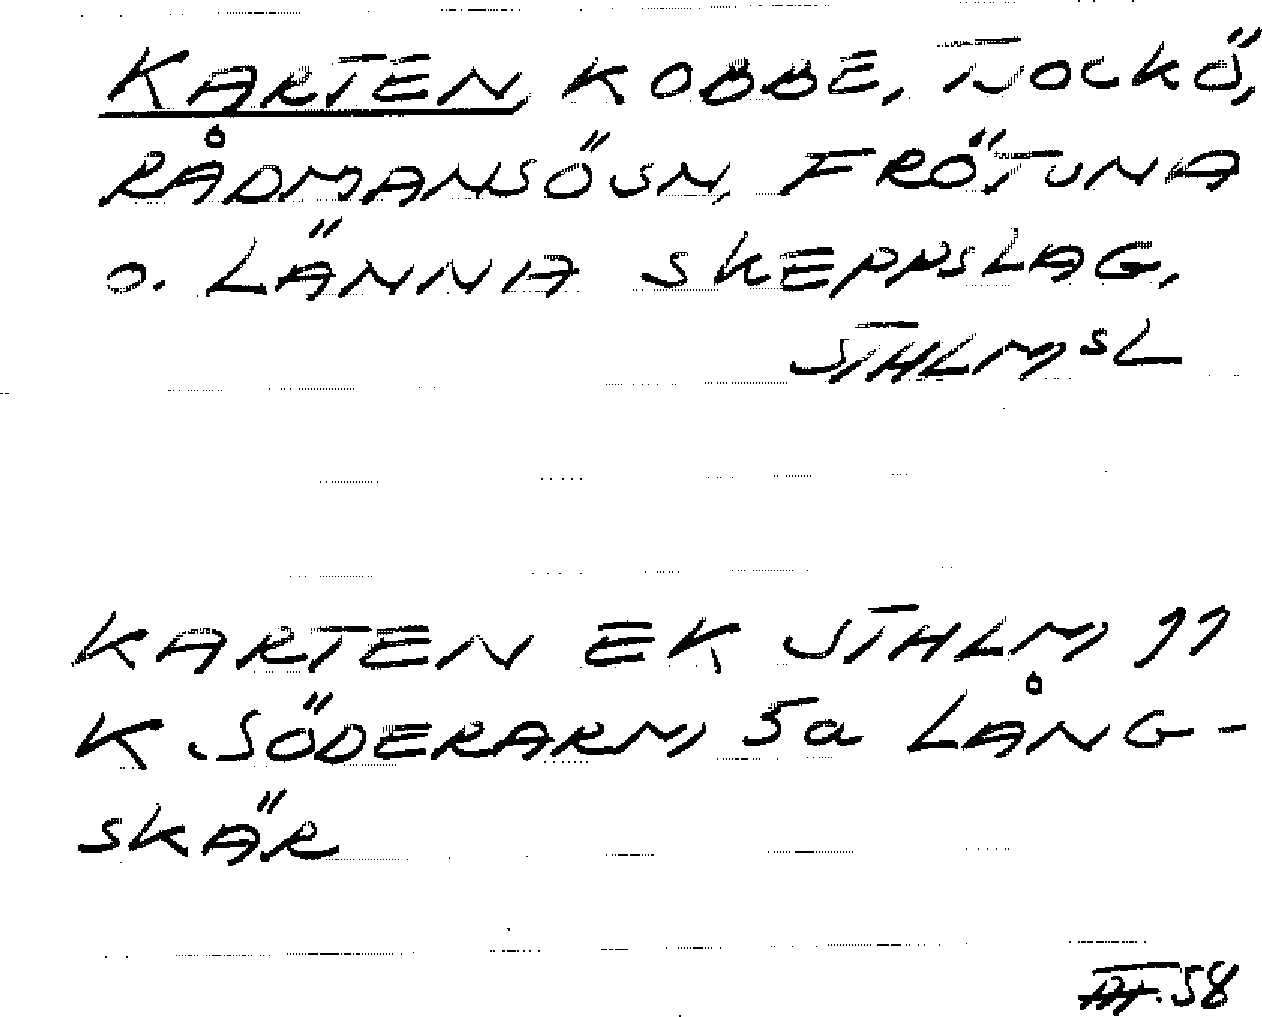 KARTEN, KOBBE, TJOCKÖ,
RÅDMANSÖSN, FRÖTUNA
O. LÄNNA SKEPPSLAG,
STHLMSL
KARTEN EK STHLM 99
K SÖDERARM, 5a LÅNG-
SKÄR
58